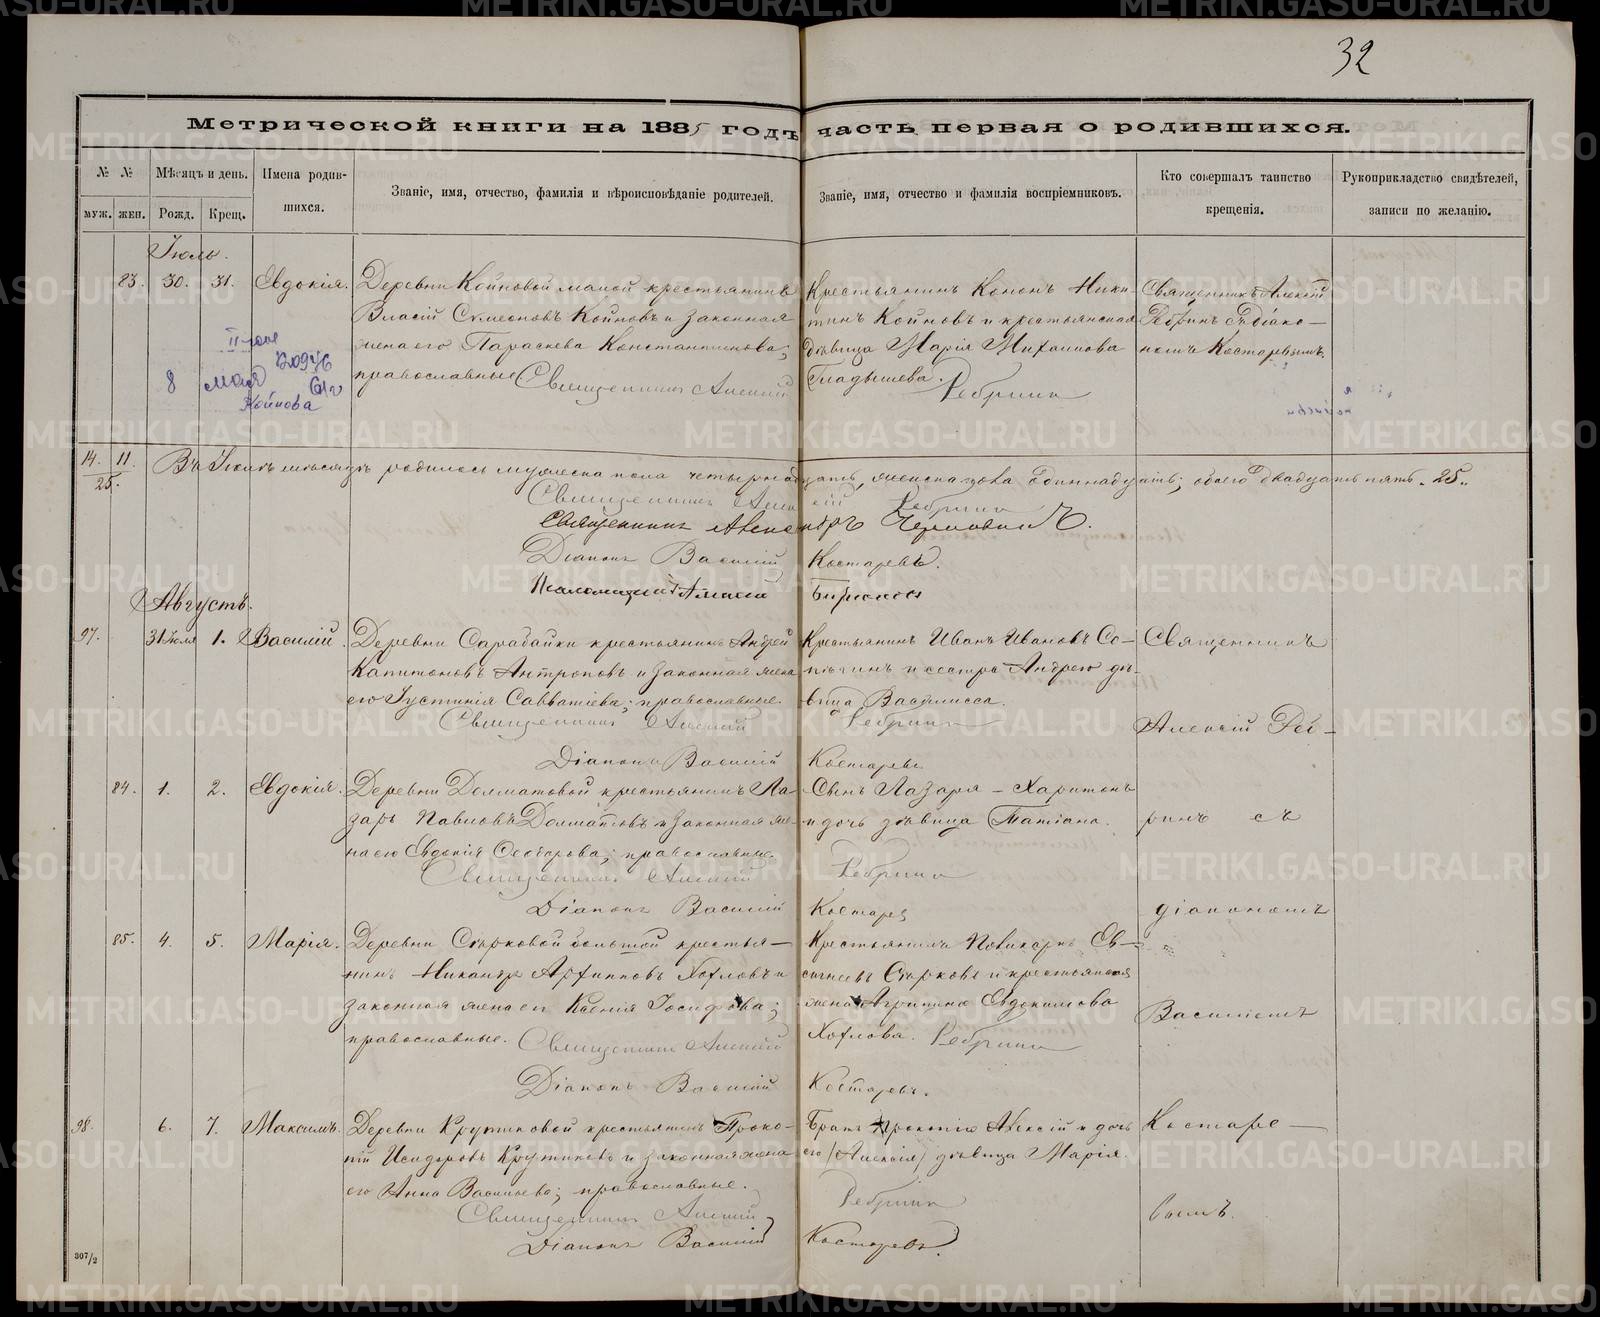 32
Метрической книги на 1885 годъ часть первая о родившихся.
№ № Мѣсяцъ и день. Имена родив-
шихся.
муж. жен. Рожд. Крещ.
Званіе, имя, отчество, фамилія и вѣроисповѣданіе родителей.
Званіе, имя, отчество и фамилія воспріемниковъ.
Кто совершалъ таинство
крещенія.
Рукоприкладство свидѣтелей,
записи по желанію.
Іюль.
83. 30. 31. Евдокія.
Деревни Койновой малой крестьянинъ
Власій Симеоновъ Койновъ и законная
жена его Параскева Константинова;
православные Священникъ Алексій
Крестьянинъ Кононъ Ники-
тинъ Койновъ и крестьянская
дѣвица Марія
Гладышева. Ребринъ
Священникъ Алексій
Ребринъ съ діако-
номъ Костаревымъ.
8 мая 61г
Койнова
14. 11.
25.
Въ Іюлѣ мѣсяцѣ родилось мужеска пола четырнадцать, женска пола одиннадцать; обоего двадцать пять. 25.
Священникъ Алексій Ребринъ
Священникъ
Діаконъ Василій Костаревъ.
Псаломщикъ
Августъ.
97. 31 Іюля 1. Василій.
Деревни Сарабайки крестьянинъ Андрей
Капитоновъ Антроповъ и законная жена
его Іустинія Савватіева; православные.
Священникъ Алексій Ребринъ
Діаконъ Василій Костаревъ
Крестьянинъ Иванъ Ивановъ Со-
и сестра Андрею дѣ-
вица Василисса.
Священникъ
Алексій Реб-
ринъ съ
діакономъ
Василіемъ
Костаре-
вымъ.
84. 1. 2. Евдокія.
Деревни Долматовой крестьянинъ Ла-
зарь Павловъ Долматовъ и законная же-
на его Евдокія Ѳеодорова; православные.
Священникъ Алексій Ребринъ
Діаконъ Василій Костаревъ
Сынъ Лазаря - Харитонъ
и дочь дѣвица Татіана.
85. 4. 5. Марія.
Деревни Сырковой большой крестья-
нинъ Никаноръ Архипповъ Хохловъ и
законная жена его Ксенія Іосифова;
православные. Священникъ Алексій Ребринъ
Діаконъ Василій Костаревъ.
Крестьянинъ Поликарпъ Ев-
сигнеевъ Сырковъ и крестьянская
жена Агрипина Евдокимова
Хохлова.
98. 6. 7. Максимъ.
Деревни Крутиковой крестьянинъ Проко-
пій Исидоровъ Крутиковъ и законная жена
его Анна Васильева; православные.
Священникъ Алексій Ребринъ
Діаконъ Василій Костаревъ.
Братъ Прокопія Алексій и дочь
его /Алексія/ дѣвица Марія.
307/2
METRIKI.GASO-URAL.RU